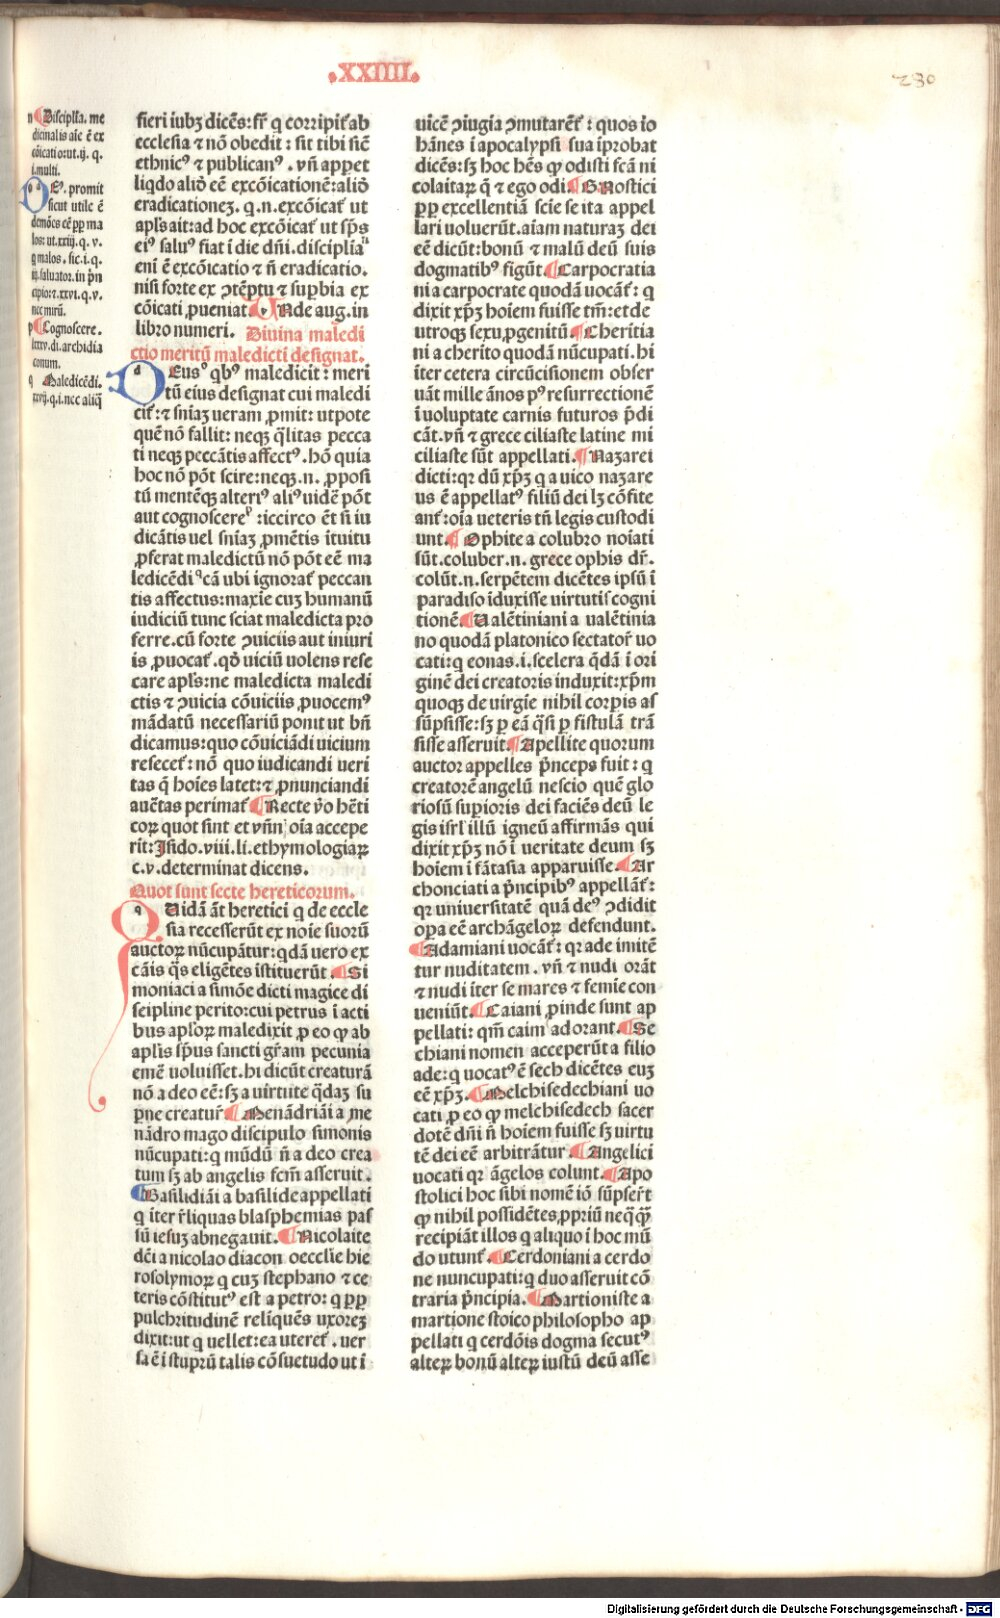 .XXIIII.
230
n Disciplīa. me
dicinalis aīe ē ex
cōicatio:ut.ij. q.
i.multi.
o Eꝰ. promit
sicut utile ē
demōes eē ꝓp ma
los: ut.xxiij.q. v.
q malos. sic.i.q.
ij.saluator.in p̄n
cipio:⁊.xxvi.q.v.
nec mirū.
p Cognoscere.
lxxxv.di.archidia
conum.
q Maledicēdi.
xxvij.q.i.nec aliq̄
fieri iubꝫ dicēs:fr̄ q corripit̄ ab
ecclesia ⁊ nō obedit : sit tibi sic̄
ethnicꝰ ⁊ publicanꝰ . vn̄ apꝑet
liq̇do aliō eē excōicationē:aliō
eradicationeꝫ. q.n.excōicat̄ ut
apl̄s ait:ad hoc excōicat̄ ut sp̄s
eiꝰ saluꝰ fiat ī die dn̄i.disciplīaⁿ
enī ē excōicatio ⁊ n̄ eradicatio.
nisi forte ex ↄtēptu ⁊ suꝑbia ex
cōicati ꝓueniat. Vnde aug.in
libro numeri. Diuina maledi
ctio meritū maledicti designat.
DEusᵒ qbꝰ maledicit : meri
tū eius designat cui maledi
cit̄ :⁊ sn̄iaꝫ ueram ꝓmit: utpote
quē nō fallit: neqꝫ q̄litas pecca
ti neqꝫ peccātis affectꝰ. hō quia
hoc nō pōt scire:neqꝫ.n. ꝓposi
tū mentēqꝫ alteriꝰ aliꝰ uidē pōt
aut cognoscereᵖ :iccirco ēt si iu
dicātis uel sn̄iaꝫ ꝓmētis ītuitu
ꝓferat maledictū nō pōt eē ma
ledicēdi ᑫcā ubi ignorat̄ peccan
tis affectus:maxīe cuꝫ humanū
iudiciū tunc sciat maledicta pro
ferre.cū forte ↄuiciis aut iniuri
is ꝓuocat̄. qō uiciū uolens rese
care apl̄s:ne maledicta maledi
ctis ⁊ ↄuicia cōuiciis ꝓuocemꝰ
mādatū necessariū ponit ut bn̄
dicamus:quo cōuiciādi uicium
resecet̄: nō quo iudicandi ueri
tas q̄ hoīes latet:⁊ ꝓnunciandi
auc̄tas perimat̄ Recte v̄o hēti
coꝝ quot sint et vn̄n̄ oīa accepe
rit:Isido.viii.li.ethymologiaꝝ
c.v.determinat dicens.
Quot sunt secte hereticorum.
QUidā āt heretici q de eccle
sia recesserūt ex noīe suorū
auctoꝝ nūcupātur:qdā uero ex
cāis q̄s eligētes īstituerūt . Si
moniaci a simōe dicti magice di
scipline perito:cui petrus ī acti
bus apl̄oꝝ maledixit ꝓ eo ꝙ ab
apl̄is sp̄us sancti gr̄am pecunia
emē uoluisset.hi dicūt creaturā
nō a deo eē:sꝫ a uirtute q̄daꝫ su
ꝑne creatur̄ Menādriāi a me
nādro mago discipulo simonis
nūcupati:q mūdū n̄ a deo crea
tum sꝫ ab angelis fcm̄ asseruit.
Basilidiāi a basilide appellati
q īter r̄liquas blasphemias pas
sū iesuꝫ abnegauit. Nicolaite
dc̄i a nicolao diacon oecclīe hie
rosolymoꝝ q cuꝫ stephano ⁊ ce
teris cōstitutꝰ est a petro: q ꝓꝑ
pulchritudinē relīquēs uxoreꝫ
dixit:ut q uellet:ea uteret̄ . ver
sa ē ī stuprū talis cōsuetudo ut ī
uicē ↄiugia ↄmutarēt̄ : quos īo
hānes ī apocalypsi sua īprobat
dicēs:sꝫ hoc hēs ꝙ odisti fcā ni
colaitaꝝ q̄ ⁊ ego odi. Gnostici
ꝓꝑ excellentiā scīe se ita appel
lari uoluerūt.aīam naturaꝫ dei
eē dicūt:bonū ⁊ malū deū suis
dogmatibꝰ figūt. Carpocratia
ni a carpocrate quodā uocāt̄: q
dixit xp̄ꝫ hoīem fuisse tm̄: et de
utroqꝫ sexu ꝓgenitū. Cherītia
ni a cherito quodā nūcupati. hi
īter cetera circūcisionem obser
uāt mille ānos pꝰ resurrectionē
ī uoluptate carnis futuros p̄di
cāt.vn̄ ⁊ grece ciliaste latine mi
ciliaste sūt appellati. Nazarei
dicti:qꝛ dū xp̄ꝫ q a uico nazare
us ē appellatꝰ filiū dei lꝫ cōfite
ant̄ :oīa ueteris tn̄ legis custodi
unt. Ophite a colubro noīati
sūt.coluber.n. grece ophis dr̄.
colūt.n.serpētem dicētes ipsū ī
paradiso īduxisse uirtutis cogni
tionē. Valētiniani a ualētinia
no quodā platonico sectator̄ uo
cati:q eonas.i.scelera q̄dā ī ori
ginē dei creatoris induxit:xp̄m
quoqꝫ de uirgīe nihil corꝑis as
sūpsisse:sꝫ ꝑ eā q̄si ꝑ fistulā trā
sisse asseruit. Apellite quorum
auctor appelles p̄nceps fuit : q
creatorē angelū nescio quē glo
riosū suꝑioris dei faciēs deū le
gis isrl̄ illū igneū affirmās qui
dixit xp̄ꝫ nō ī ueritate deum sꝫ
hoīem ī fātasia apparuisse. Ar
chonciati a p̄ncipibꝰ appellāt̄:
qꝛ uniuersitatē quā deꝰ ↄdidit
oꝑa eē archāgeloꝝ defendunt.
Adamiani uocāt̄: qꝛ ade imitē
tur nuditatem . vn̄ ⁊ nudi orāt
⁊ nudi īter se mares ⁊ femīe con
ueniūt. Caiani ꝓinde sunt ap
pellati: qm̄ caim adorant. Se
chiani nomen acceperūt a filio
ade: q uocatꝰ ē sech dicētes euꝫ
eē xp̄ꝫ. Melchisedechiani uo
cati ꝓ eo ꝙ melchisedech sacer
dotē dn̄i n̄ hoīem fuisse sꝫ uirtu
tē dei eē arbitrātur. Angelici
uocati qꝛ āgelos colunt. Apo
stolici hoc sibi nomē iō sūpser̄t
ꝙ nihil possidētes ꝓpriū neq̄q̄ꝫ
recipiāt illos q aliquo ī hoc mū
do utunt̄. Cerdoniani a cerdo
ne nuncupati:q duo asseruit cō
traria p̄ncipia. Martioniste a
martione stoico philosopho ap
pellati q cerdōis dogma secutꝰ
alteꝝ bonū alteꝝ iustū deū asse
Digitalisierung gefördert durch die Deutsche Forschungsgemeinschaft - DFG